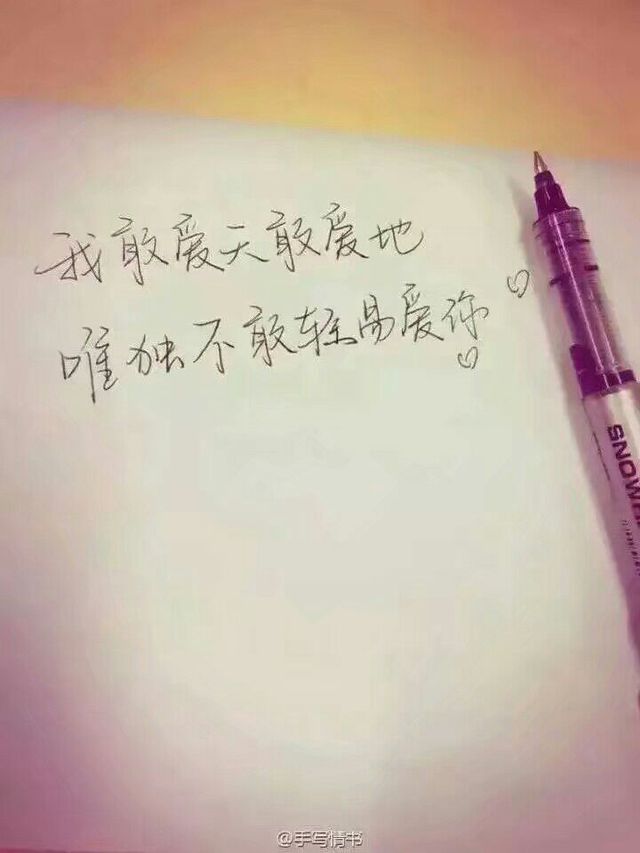 我敢爱天敢爱地
唯独不敢轻易爱你
SNOWH
@手写情书